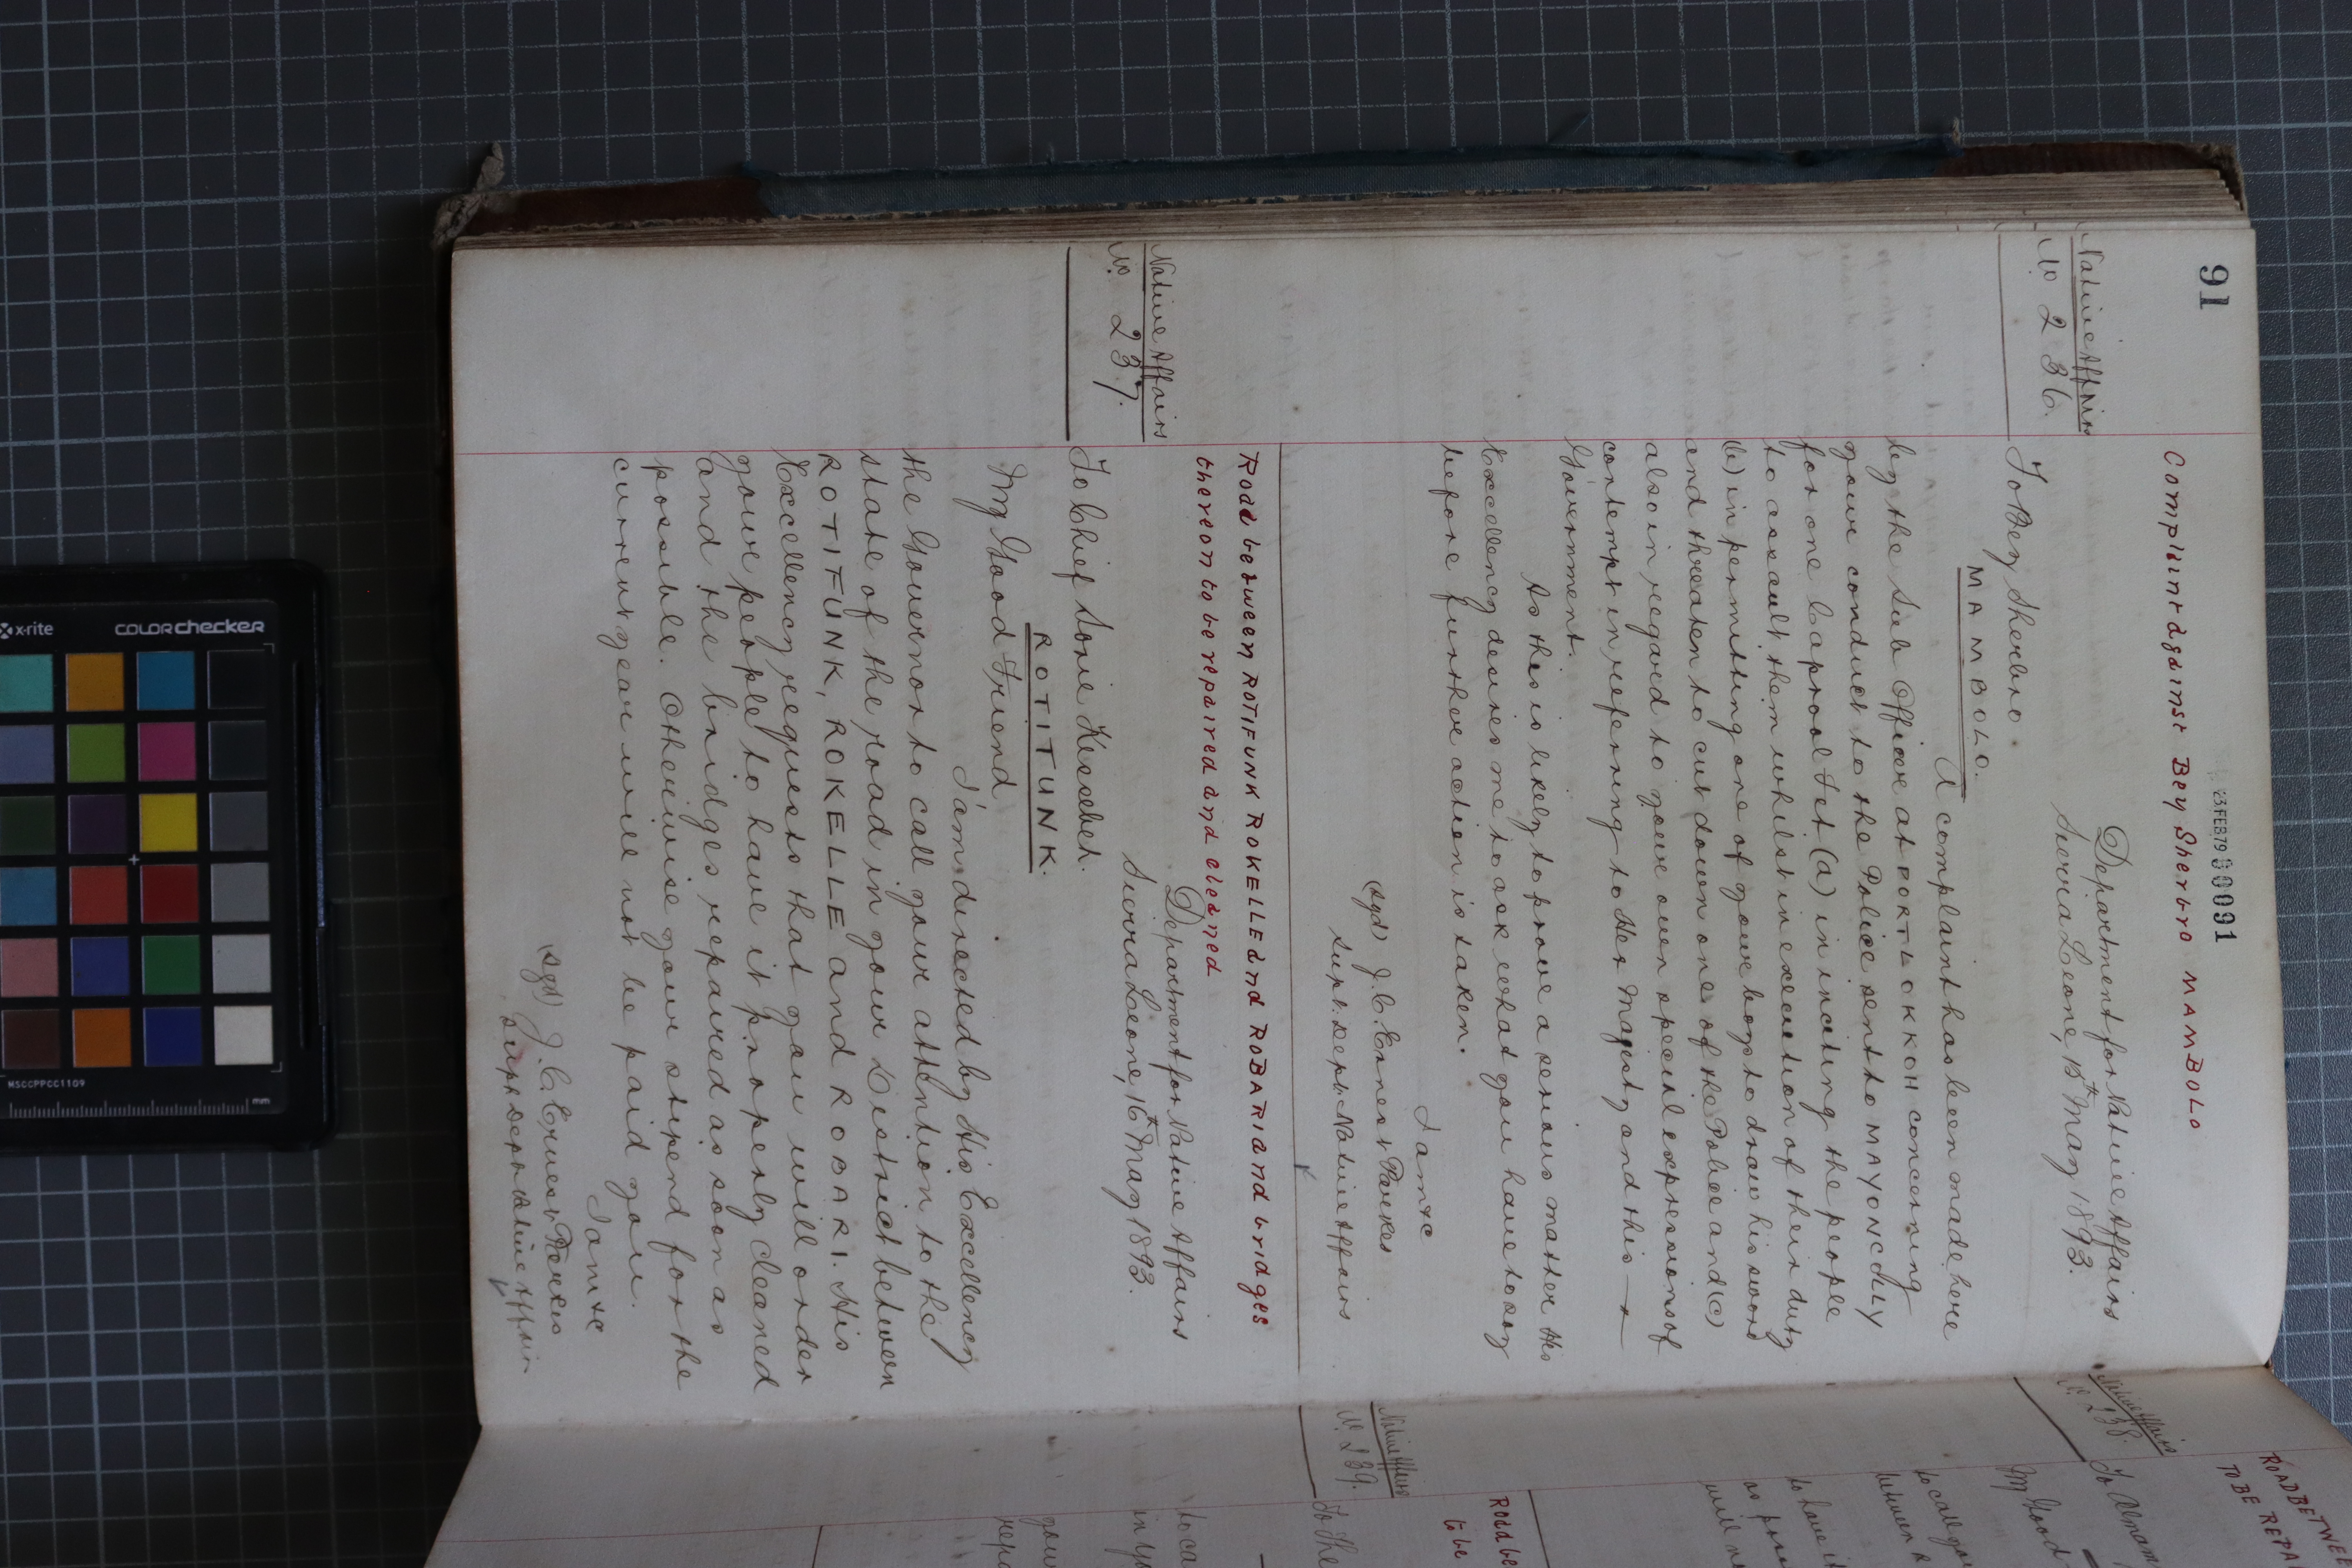 91
23 FEB 79 00091
Complaint against Bey Sherbro MAMBOLO
Native Affairs
No. 236.
Department for Native Affairs
Sierra Leone, 15th May 1893.
To Bey Sherbro.
MAMBOLO.
A complaint has been made here
by the Sub Officer at PORT LOKKOH concerning
your conduct to the Police sent to MAYONCHLY
for one Caprol Tet (a) in inciting the people
to assault them whilst in execution of their duty
(b) in permitting one of your boys to draw his sword
and threaten to cut down one of the Police and (c)
also in regard to your own special expressions of
contempt in referring to Her Majesty and this
Government.
As this is likely to prove a serious matter His
Excellency desires me to ask what you have to say
before further action is taken.
I am &c
(sgd) J. C. Ernest Parkes
Supt. Dept. Native Affairs
Road between ROTIFUNK ROKELLE and ROBARI and bridges
thereon to be repaired and cleaned
Native Affairs
No. 237.
Department for Native Affairs
Sierra Leone, 16th May 1893.
To Chief Sorie Kessebeh.
ROTITUNK.
My Good Friend
I am directed by His Excellency
the Governor to call your attention to the
state of the road in your District between
ROTIFUNK, ROKELLE and ROBARI. His
Excellency requests that you will order
your people to have it properly cleaned
and the bridges repaired as soon as
possible. Otherwise your stipend for the
current year will not be paid you.
I am &c
(sgd) J. C. Ernest Parkes
Supt Dept Native Affairs
ROAD BETWE
TO BE REPA
Native Affairs
No. 238.
To Almam
My Good
to call you
between R
to have it
as poss
will no
Road be
to be
Native Affairs
No. 239.
To the
to ca
in yo
your
repa
x-rite
COLORchecker
MSCCPPCC1109
mm